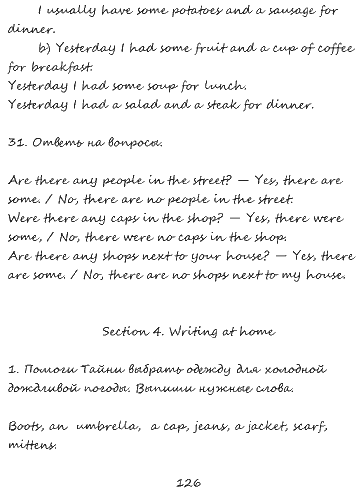 I usually have some potatoes and a sausage for
dinner.
b) Yesterday I had some fruit and a cup of coffee
for breakfast.
Yesterday I had some soup for lunch.
Yesterday I had a salad and a steak for dinner.
31. Ответь на вопросы.
Are there any people in the street? — Yes, there are
some. / No, there are no people in the street.
Were there any caps in the shop? — Yes, there were
some, / No, there were no caps in the shop.
Are there any shops next to your house? — Yes, there
are some. / No, there are no shops next to my house.
Section 4. Writing at home
1. Помоги Тайни выбрать одежду для холодной
дождливой погоды. Выпиши нужные слова.
Boots, an umbrella, a cap, jeans, a jacket, scarf,
mittens.
126